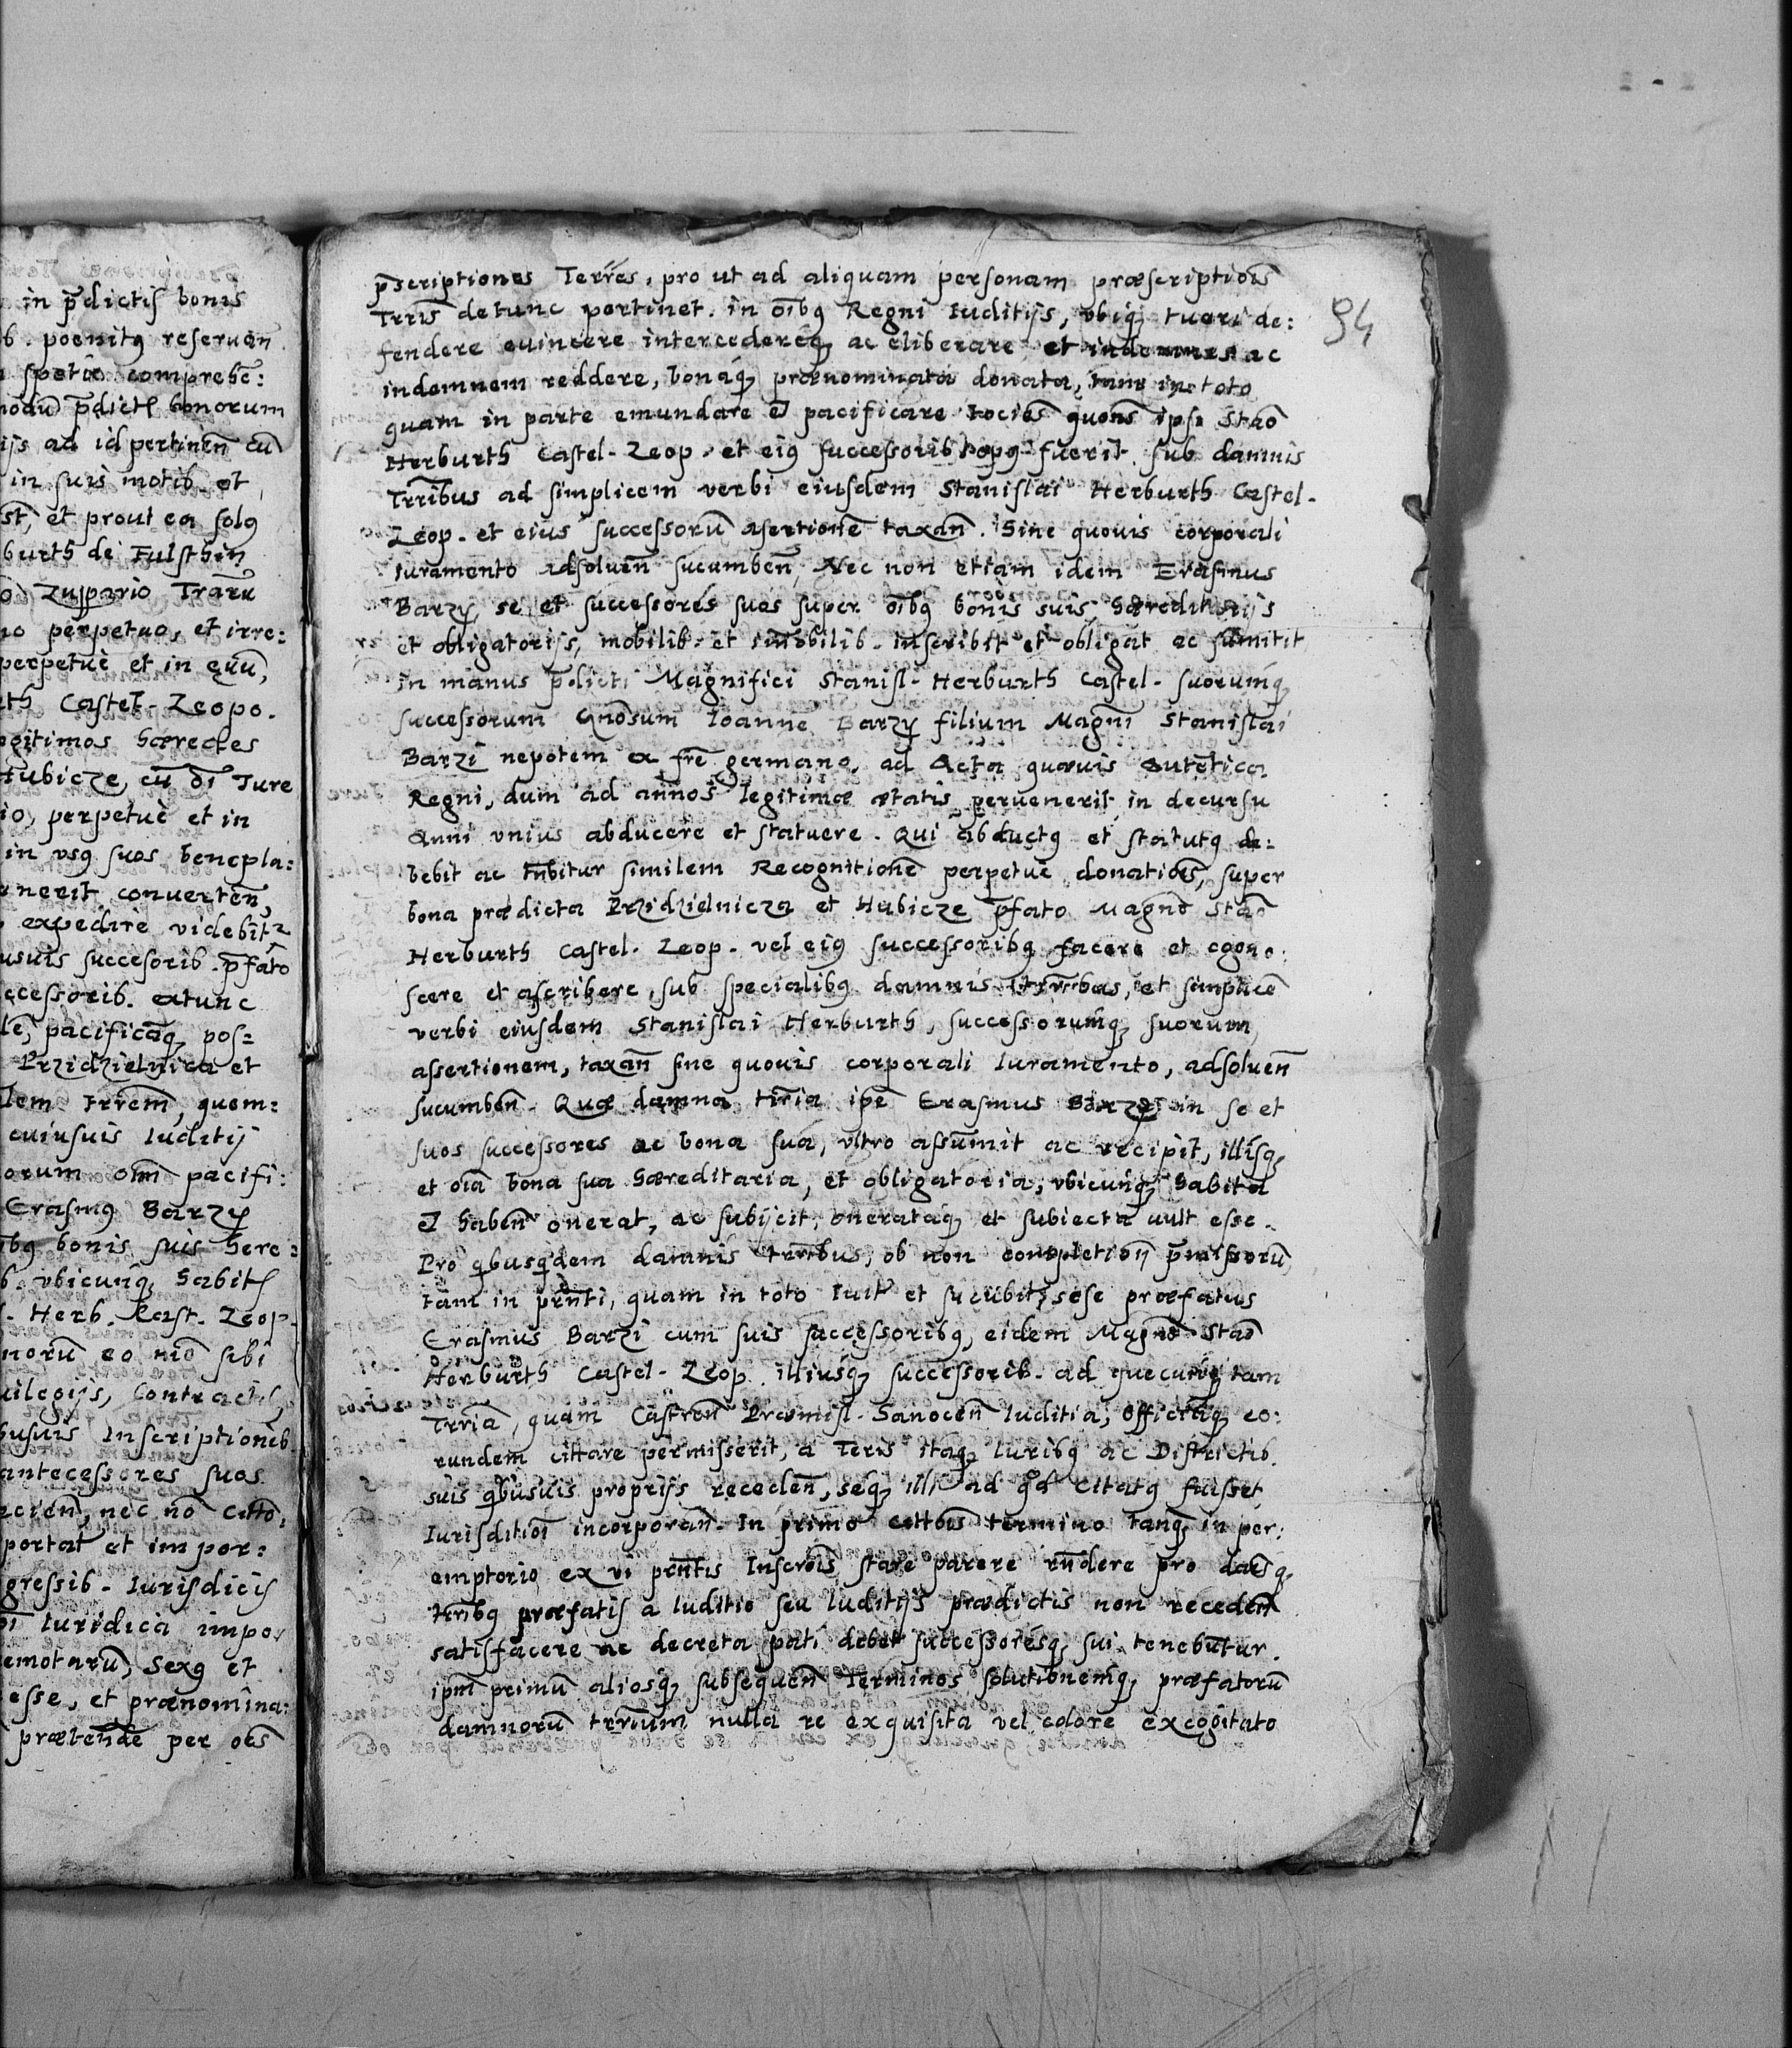 in p̄dictis bonis
b. poenitꝰ reseruan̄
spetie comprehē:
modū p̄dictꝭ bonorum
ijs ad id pertinen̄ cū
in suis motib. et
st, et prout ea solꝰ
burth de Fulsthin
Zuppario
no perpetuo, et irre:
perpetuè et in euū,
th Castel. Leopo.
egitimos hæredes
Hubicze, cū oī Jure
io, perpetuè et in
in vsꝰ suos benepla:
uenerit conuerten̄,
expedire videbit
usuis succesorib. p̄fato
ccessorib. extunc
dē, pacificāqꝫ pos=
Przidzielnica et
lem trrem̄, quem:
cuiusuis Iuditij
orum oīm pacifi:
Erasmꝰ Barzy
ibꝰ bonis suis here:
b. vbicunqꝫ habitꝭ
. Herb. Cast. Leop.
norū eo nīo sibi
uilegijs, Contractꝭ,
busuis Inscriptionib
antecessores suos
ecien̄, nec nō
portat et impor:
gressib. Iurisdicis
Iuridica impos
emotarū, Sexꝰ et
esse, et prænomina:
prætendē per oēs
94
p̄scriptiones Terr̄es, pro ut ad aliquam personam præscriptiōis
Trris̄ detunc pertinet. in oībꝰ Regni Iuditijs, vbiqꝫ tueri de:
fendere euincere intercedereqꝫ ac eliberare et indemnes ac
indemnem reddere, bonáqꝫ prænominata donata, tam in toto
quam in parte emundare et pacificare tocies̄ quons̄ ipsi Staō
Herburth Castel. Leop. et eiꝰ successorib opꝰ fuerit sub damnis
Trr̄ibus ad simplicem verbi eiusdem Stanislai Herburth Castel.
Leop. et eius successorū asertionē taxan̄. Sine quouis corporali
iuramento adsoluen̄ sucumben̄, Nec non etiam idem Erasmus
Barzy, se et successorés suos super oībꝰ bonis suis, hæreditarijs
et obligatorijs, mobilib. et imobilib. inscribit et obligat ac sūmitit
in manus p̄dicti Magnifici Stanisl. Herburth Castel. suorumqꝫ
successorum Gn̄osum Ioannē Barzy filium Magn̄i Stanislai
Barzi nepotem ex fr̄e germano, ad Acta quæuis Autētica
Regni, dum ad annos legitimæ ætatis peruenerit in decursu
Anni vnius abducere et statuere. Qui abductꝰ et statutꝰ de:
bebit ac tn̄bitur similem Recognitionē perpetuè donatiōis, super
bona prædicta Przidzielnicza et Hubicze p̄fato Magnō Staō
Herburth Castel. Leop. vel eiꝰ successoribꝰ facere et cogno:
scere et ascribere, sub specialibꝰ damnis trr̄ibus, et simplicē
verbi eiusdem Stanislai Herburth, successorumqꝫ suorum,
assertionem, taxan̄ sine quouis corporali Iuramento, adsoluen̄
sucumben̄. Quæ damna trr̄ia ipē Erasmus Barzy in se et
suos successores ac bona sua, vltro assumit ac recipit, illisqꝫ
et oīa bona sua hæreditaria, et obligatoria, vbicunqꝫ habita
et haben̄ onerat, ac subijcit, onerataqꝫ et subiecta uult esse.
Pro qibusqidem damnis trr̄ibus, ob non completion̄ p̄missorū,
tam in pr̄nti, quam in toto luit et sucūbit, sese præfatus
Erasmus Barzi cum suis successoribꝰ, eidem Magnō Staō
Herburth Castel. Leop. illiusqꝫ successorib. ad quecunqꝫ tam
Trr̄ia, quam Castren̄ Præmisl. Sanocen̄ Iuditia, Officiaqꝫ eo:
rundem cittare permisserit, a Teris itaqꝫ Iuribꝰ ac Districtib.
suis qibusuis proprijs receden̄, seqꝫ illi ad citatꝰ fuisset,
Iurisditiōi incorporan̄. In primo citt̄ois termino tanqꝫ in per:
emptorio ex vi prn̄tis Inscrōis stare parere rn̄dere pro
trr̄ibꝰ præfatis a Iuditio seu Iuditijs prædictis non receden̄
satisfacere ac decreta pati debet successorésqꝫ sui tenebūtur.
ipm̄ primū aliosqꝫ subsequen̄ Terminos solutionemqꝫ præfatorū
damnorū trr̄ium nulla re exquisita vel colore excogitato